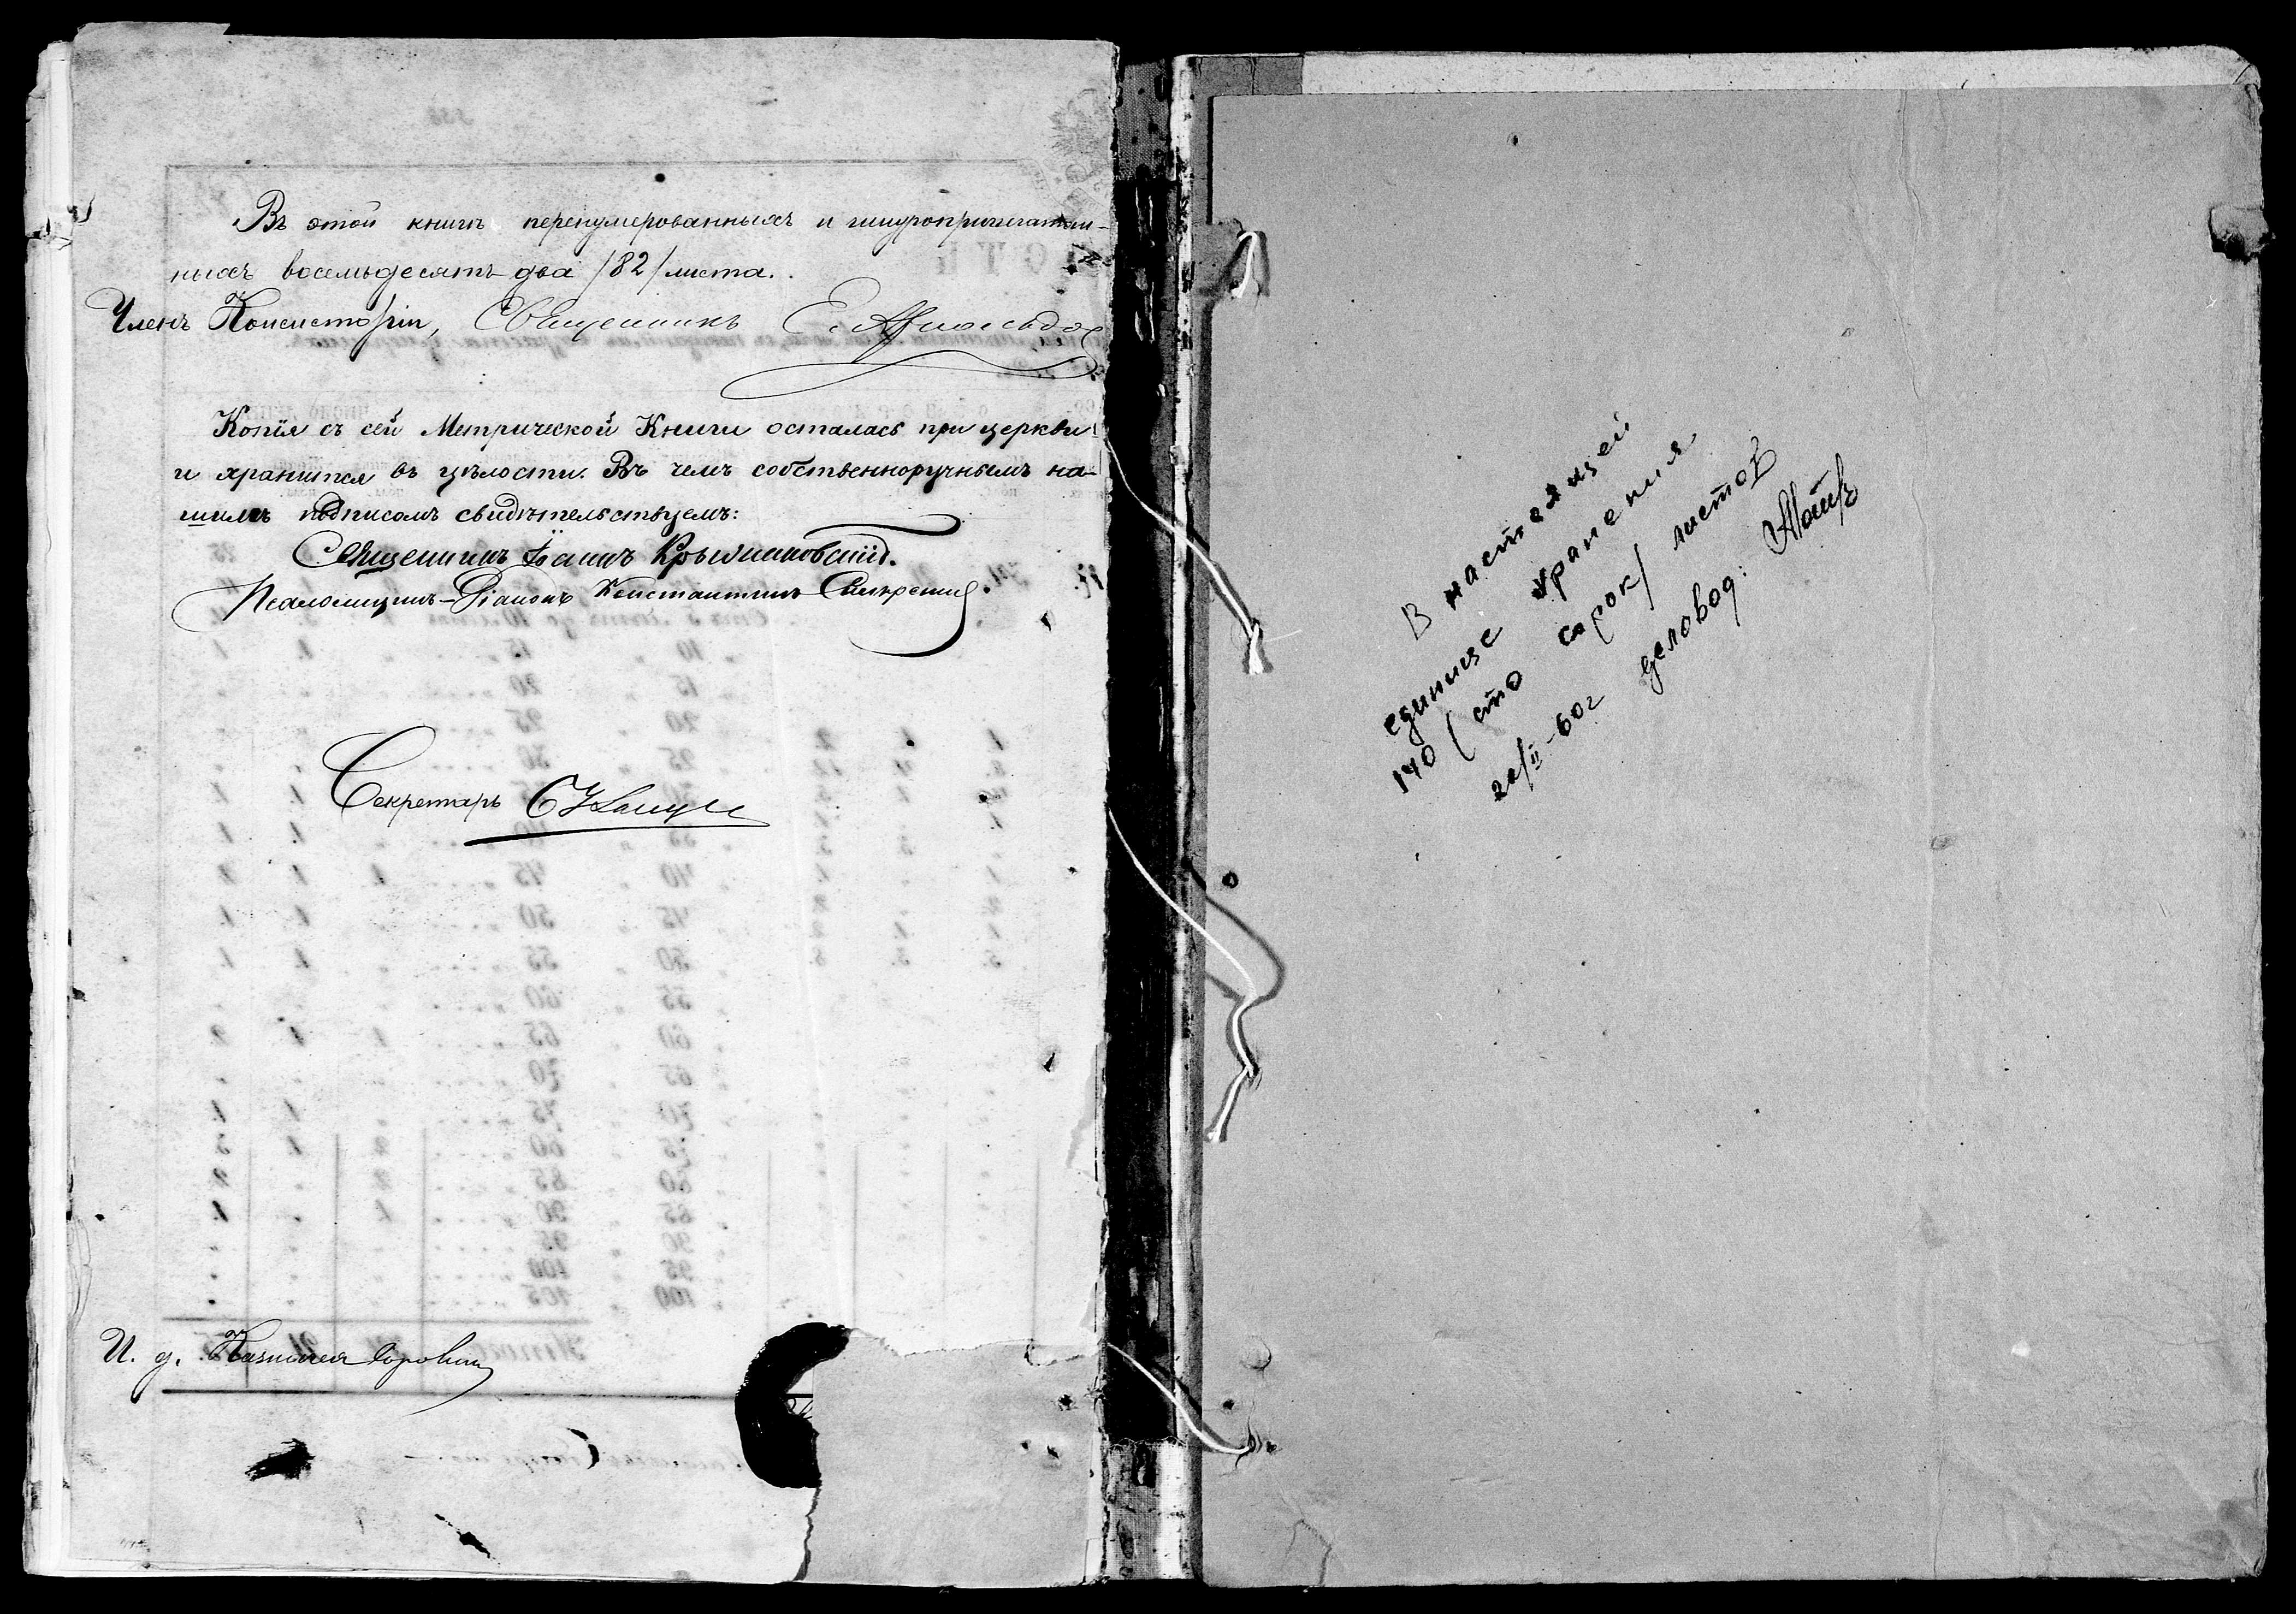 Въ этой книгѣ перенумерованныхъ и шнуроприпечатан-
ныхъ восемьдесятъ два /82/ листа.
Членъ Консисторіи, Священникъ Е.
Копія съ сей Метрической Книги осталась при церкви
и хранится въ цѣлости. Въ чемъ собственноручнымъ на-
шимъ подписомъ свидѣтельствуемъ:
Священникъ Іоаннъ Крыжановскій.
Псаломщикъ-Діаконъ Константинъ
Секретарь
И. д. Казначея
В настоящей
единице хранения
140 (сто сорок) листов
22/II-60г деловод: